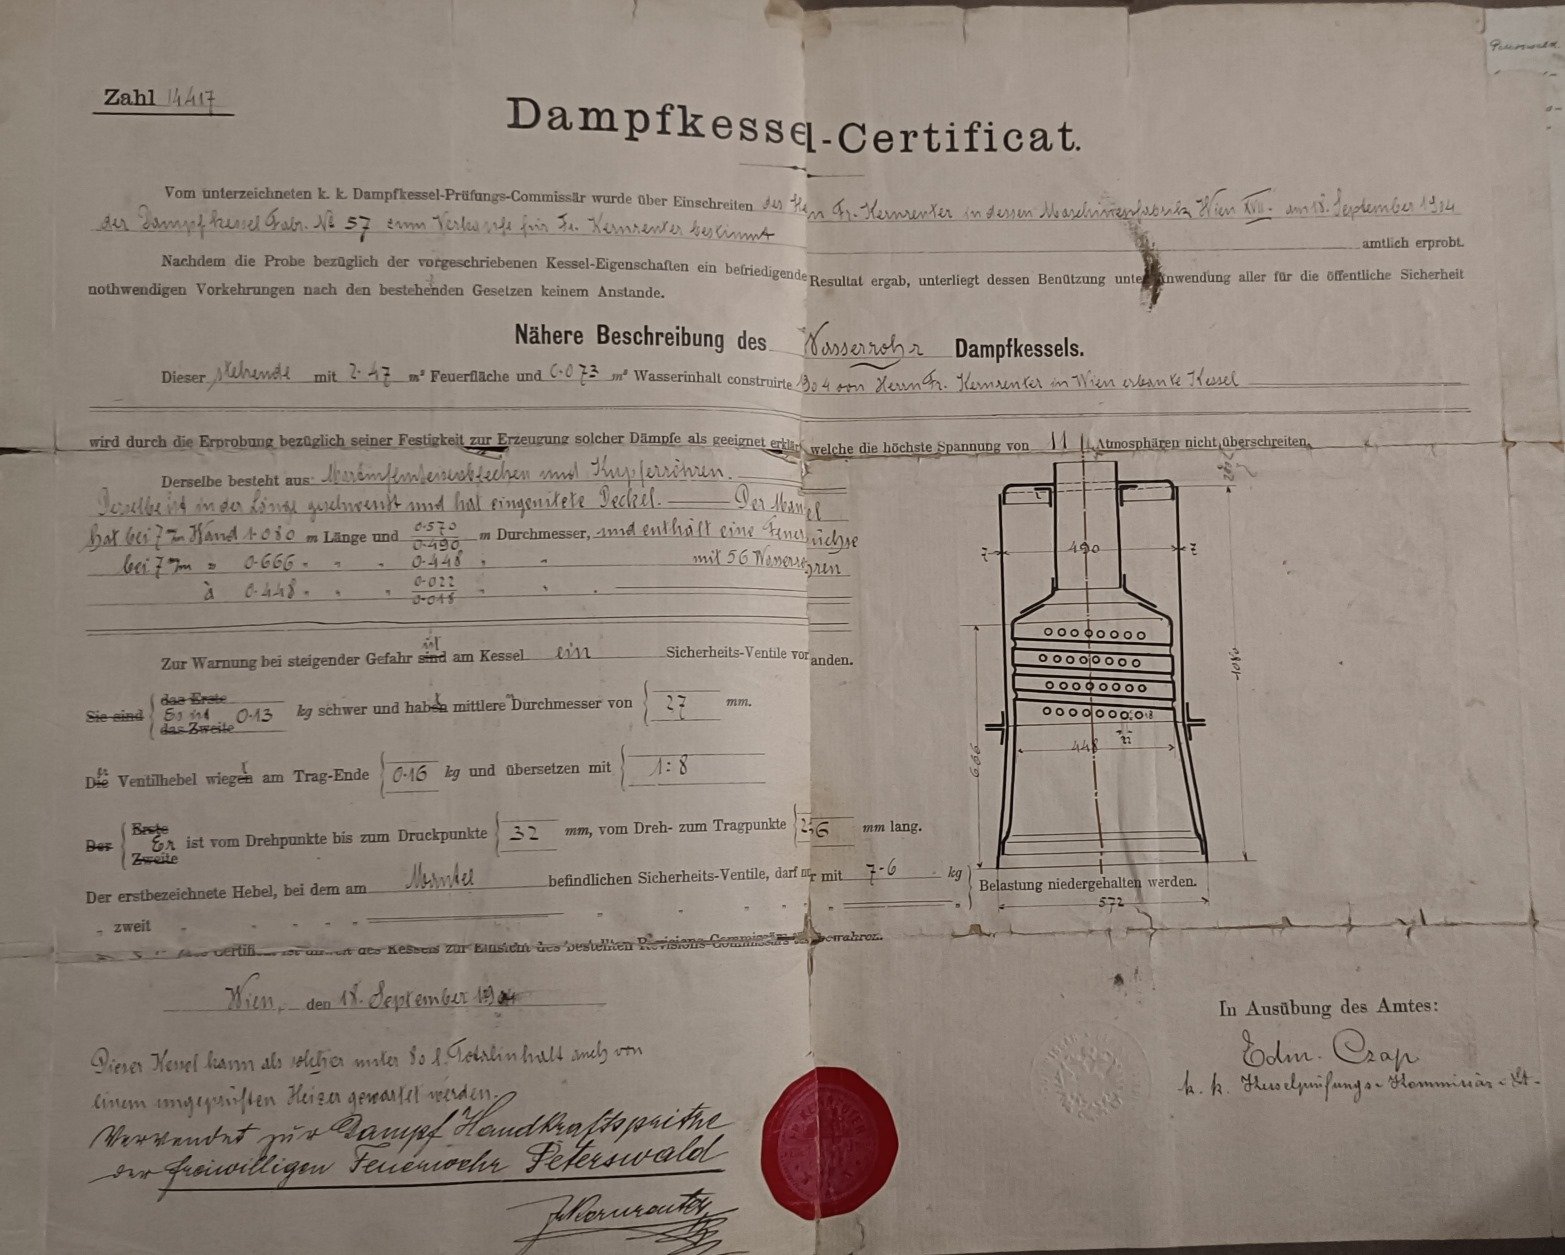 Zahl 14417
Dampfkessel-Certificat.
Vom unterzeichneten k. k. Dampfkessel-Prüfungs-Commissär wurde über Einschreiten des Herrn Fr. Kernreuter in dessen Maschinenfabrik Wien XVII. am 18. September 1904
der Dampfkessel Fabr. № 57 zum Verkaufe für Fr. Kernreuter bestimmt
amtlich erprobt.
Nachdem die Probe bezüglich der vorgeschriebenen Kessel-Eigenschaften ein befriedigende Resultat ergab, unterliegt dessen Benützung unte Anwendung aller für die öffentliche Sicherheit
nothwendigen Vorkehrungen nach den bestehenden Gesetzen keinem Anstande.
Nähere Beschreibung des Wasserrohr Dampfkessels.
Dieser stehende mit 2·47 m² Feuerfläche und 0·073 m³ Wasserinhalt construirte 1904 von Herrn Fr. Kernreuter in Wien erbaute Kessel
wird durch die Erprobung bezüglich seiner Festigkeit zur Erzeugung solcher Dämpfe als geeignet erklärt, welche die höchste Spannung von 11 Atmosphären nicht überschreiten.
Derselbe besteht aus: und Kupferröhren.
Derselbe ist in der Länge geschweisst und hat eingenietete Deckel. Der Mantel
hat bei 7 mm Wand 1·080 m Länge und 0·570 0·490 m Durchmesser, und enthält eine Feuerbüchse
bei 7 mm " 0·666 " " " 0·448 " " mit 56 Wasserröhren
à 0·448 " " " 0·022 0·018 " "
Zur Warnung bei steigender Gefahr sind ist am Kessel ein Sicherheits-Ventile voranden.
Sie sind das Erste Es ist das Zweite 0·13 kg schwer und haben mittlere Durchmesser von 27 mm.
Die Ventilhebel wiegen am Trag-Ende 0·16 kg und übersetzen mit 1:8
Der Erste Er Zweite ist vom Drehpunkte bis zum Druckpunkte 32 mm, vom Dreh- zum Tragpunkte 256 mm lang.
Der erstbezeichnete Hebel, bei dem am Mantel befindlichen Sicherheits-Ventile, darf nur mit 7·6 kg Belastung niedergehalten werden.
" zweit " " " " " " " "
des Kessels zur Einsicht des bestellten Revisions-Commissärs bewahren.
Wien, den 18. September 1904
Dieser Kessel kann als solcher unter 80 l. Totalinhalt auch von
einem ungeprüften Heizer gewartet werden.
Verwendet zur Dampf Handkraftspritze
der freiwilligen Feuerwehr Peterswald
Fr Kernreuter
In Ausübung des Amtes:
Edm. Czap
k. k. Kesselprüfungs-Kommissär-St.
7
490
7
1080
448
22
666
572